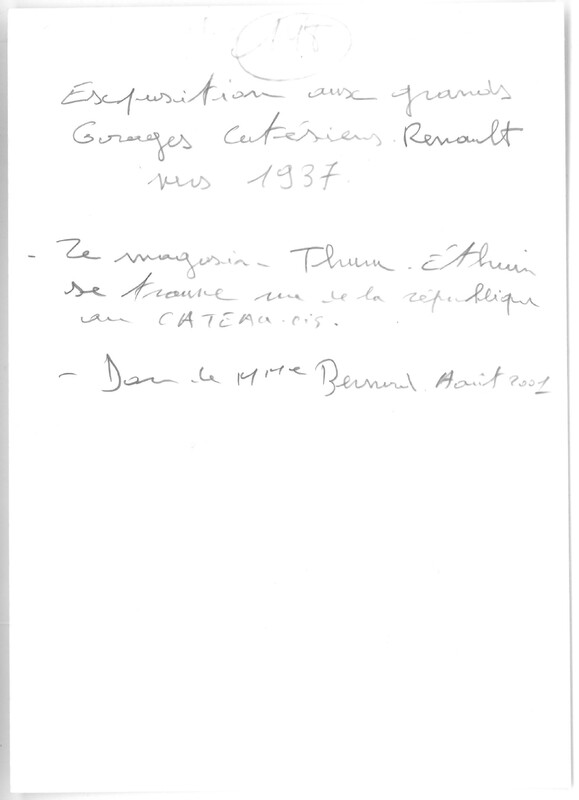 Exposition aux grands
Garages Catésiens. Renault
vers 1937.
- Le magasin - Thum. Éthuin
se trouve rue de la république
au CATEAU.cis.
- Don de MMe Bernard Août 2001